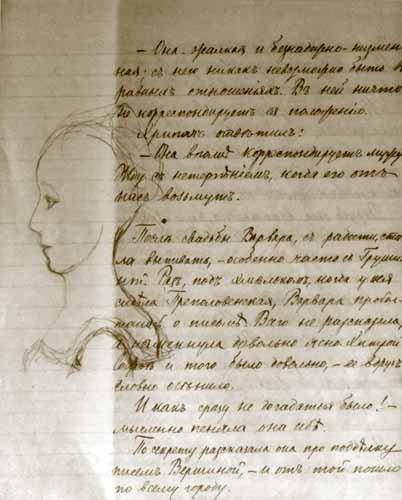 — Она зралая и
ная; съ нею никакъ невозможно быть въ
равныхъ отношенiяхъ. Въ ней ничто
не корреспондируетъ ея положенiю.
отвѣтилъ:
— Она вполнѣ корреспондируетъ мужу
съ нетерпѣнiемъ, когда его отъ
насъ возьмутъ.
Послѣ свадьбы Варвара, съ радости, ста
ла выпивать, – особенно часто съ Груши
ной. Разъ, подъ хмѣлькомъ, когда у нея
сидѣла Преполовенская, Варвара пробол
талась о письмѣ. Всего не разсказала,
а намекнула довольно ясно. Хитрой
Софьѣ и того было довольно, – ее вдругъ
словно осѣнило.
И какъ сразу не догадаться было! –
мысленно пеняла она себѣ.
По секрету разсказала она про поддѣлку
писемъ Вершиной, – и отъ той пошло
по всему городу.